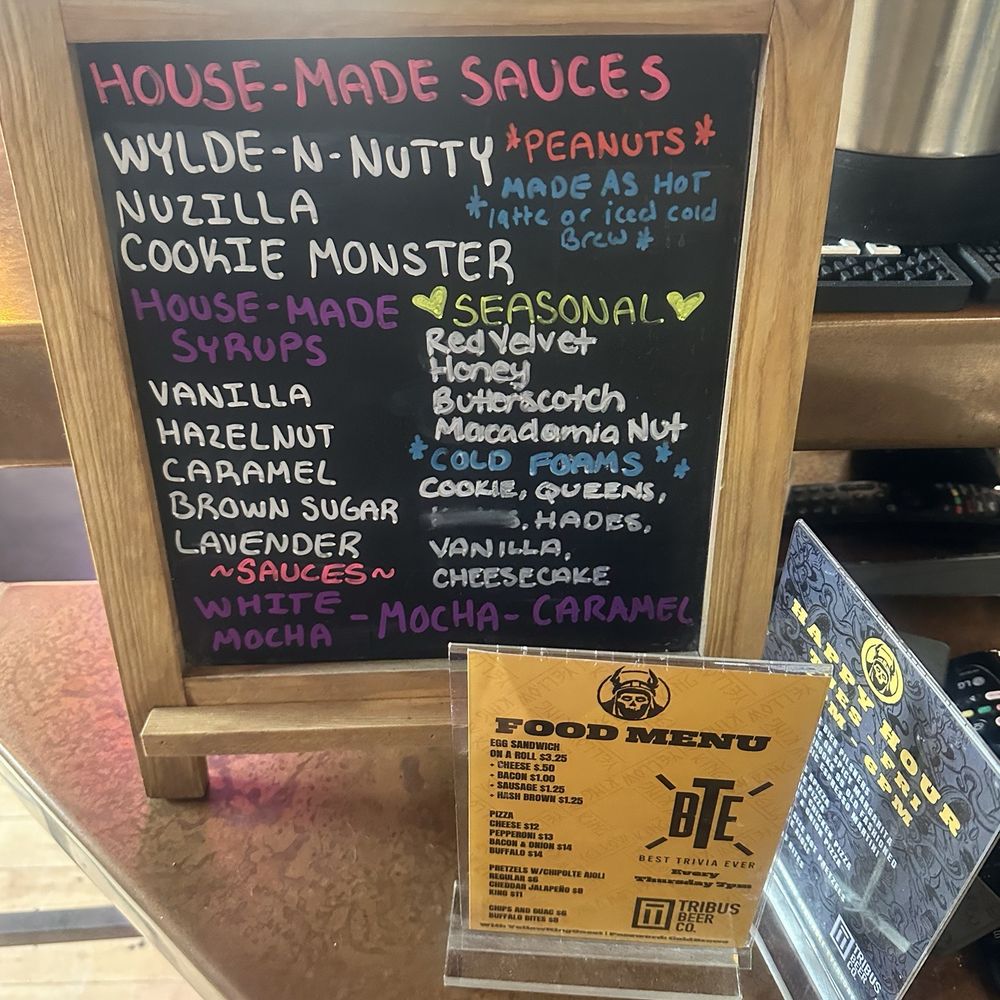 HOUSE-MADE SAUCES
WYLDE-N-NUTTY *PEANUTS*
NUZILLA
COOKIE MONSTER
MADE AS HOT
*latte or iced cold
Brew*
HOUSE-MADE
SYRUPS
VANILLA
HAZELNUT
CARAMEL
BROWN SUGAR
LAVENDER
SEASONAL
Red Velvet
Honey
Butterscotch
Macadamia Nut
*COLD FOAMS**
COOKIE, QUEENS,
, HADES,
VANILLA,
CHEESECAKE
~SAUCES~
WHITE
MOCHA
-MOCHA-CARAMEL
FOOD MENU
EGG SANDWICH
ON A ROLL $3.25
+ CHEESE $.50
+ BACON $1.00
+ SAUSAGE $1.25
+ HASH BROWN $1.25
PIZZA
CHEESE $12
PEPPERONI $13
BACON & ONION $14
BUFFALO $14
PRETZELS W/CHIPOLTE AIOLI
REGULAR $6
CHEDDAR JALAPEÑO $8
KING $11
CHIPS AND GUAC $6
BUFFALO BITES $8
BTE
BEST TRIVIA EVER
Every
Thursday 7pm
TRIBUS
BEER
CO.
HAPPY HOUR
FRI
6PM
TRIBUS
BEER
CO.
LG